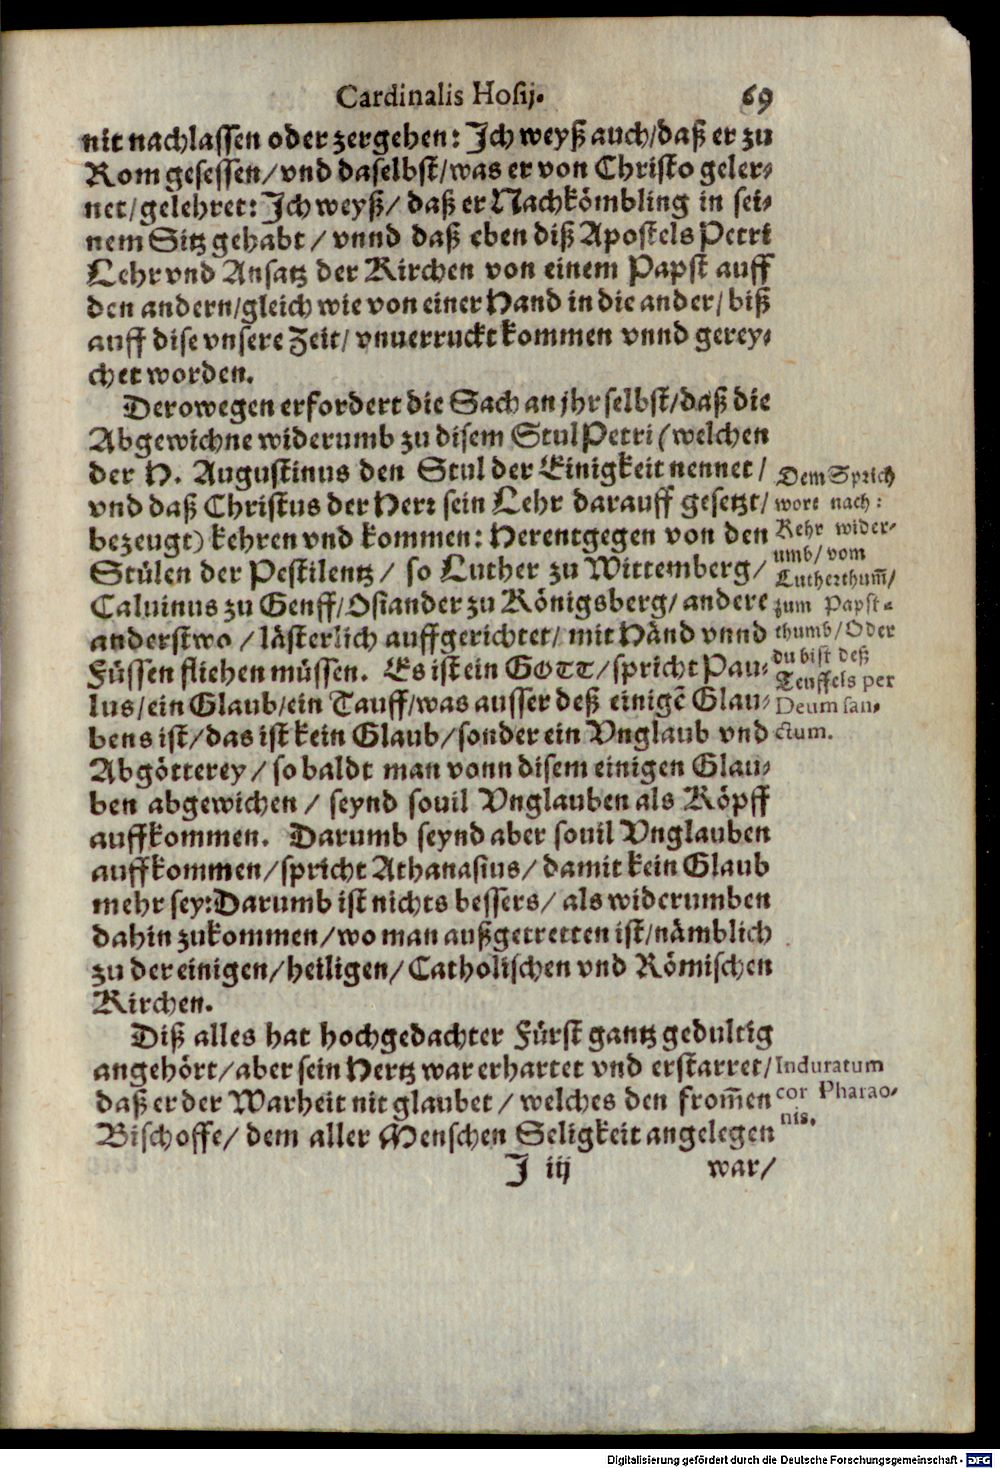 Cardinalis Hosij. 69
nit nachlassen oder zergehen: Jch weyß auch/daß er zu
Rom gesessen/vnd daselbst/was er von Christo geler-
net/gelehret: Jch weyß/ daß er Nachkömbling in sei-
nem Sitz gehabt/ vnnd daß eben diß Apostels Petri
Lehr vnd Ansatz der Kirchen von einem Papst auff
den andern/gleich wie von einer Hand in die ander/ biß
auff dise vnsere Zeit/ vnuerruckt kommen vnnd gerey-
chet worden.
Derowegen erfordert die Sach an jhr selbst/daß die
Abgewichne widerumb zu disem Stul Petri (welchen
der H. Augustinus den Stul der Einigkeit nennet/
vnd daß Christus der Herr sein Lehr darauff gesetzt/
bezeugt) kehren vnd kommen: Herentgegen von den
Stülen der Pestilentz/ so Luther zu Wittemberg/
Caluinus zu Genff/Osiander zu Königsberg/ andere
anderstwo/ lästerlich auffgerichtet/ mit Händ vnnd
Füssen fliehen müssen. Es ist ein GOTT/spricht Pau-
lus/ein Glaub/ein Tauff/was ausser deß einigē Glau-
bens ist/das ist kein Glaub/sonder ein Vnglaub vnd
Abgötterey/ so baldt man vonn disem einigen Glau-
ben abgewichen/ seynd souil Vnglauben als Köpff
auffkommen. Darumb seynd aber souil Vnglauben
auffkommen/spricht Athanasius/ damit kein Glaub
mehr sey: Darumb ist nichts bessers/ als widerumben
dahin zukommen/wo man außgetretten ist/nämblich
zu der einigen/heiligen/Catholischen vnd Römischen
Kirchen.
Dem Sprich
wort nach:
Kehr wider-
umb/ vom
Lutherthum̄/
zum Papst-
thumb/Oder
du bist deß
Teuffels per
Deum san-
ctum.
Diß alles hat hochgedachter Fürst gantz gedultig
angehört/aber sein Hertz war erhartet vnd erstarret/
daß er der Warheit nit glaubet/ welches den from̄en
Bischoffe/ dem aller Menschen Seligkeit angelegen
Induratum
cor Pharao-
nis.
J iij war/
Digitalisierung gefördert durch die Deutsche Forschungsgemeinschaft - DFG